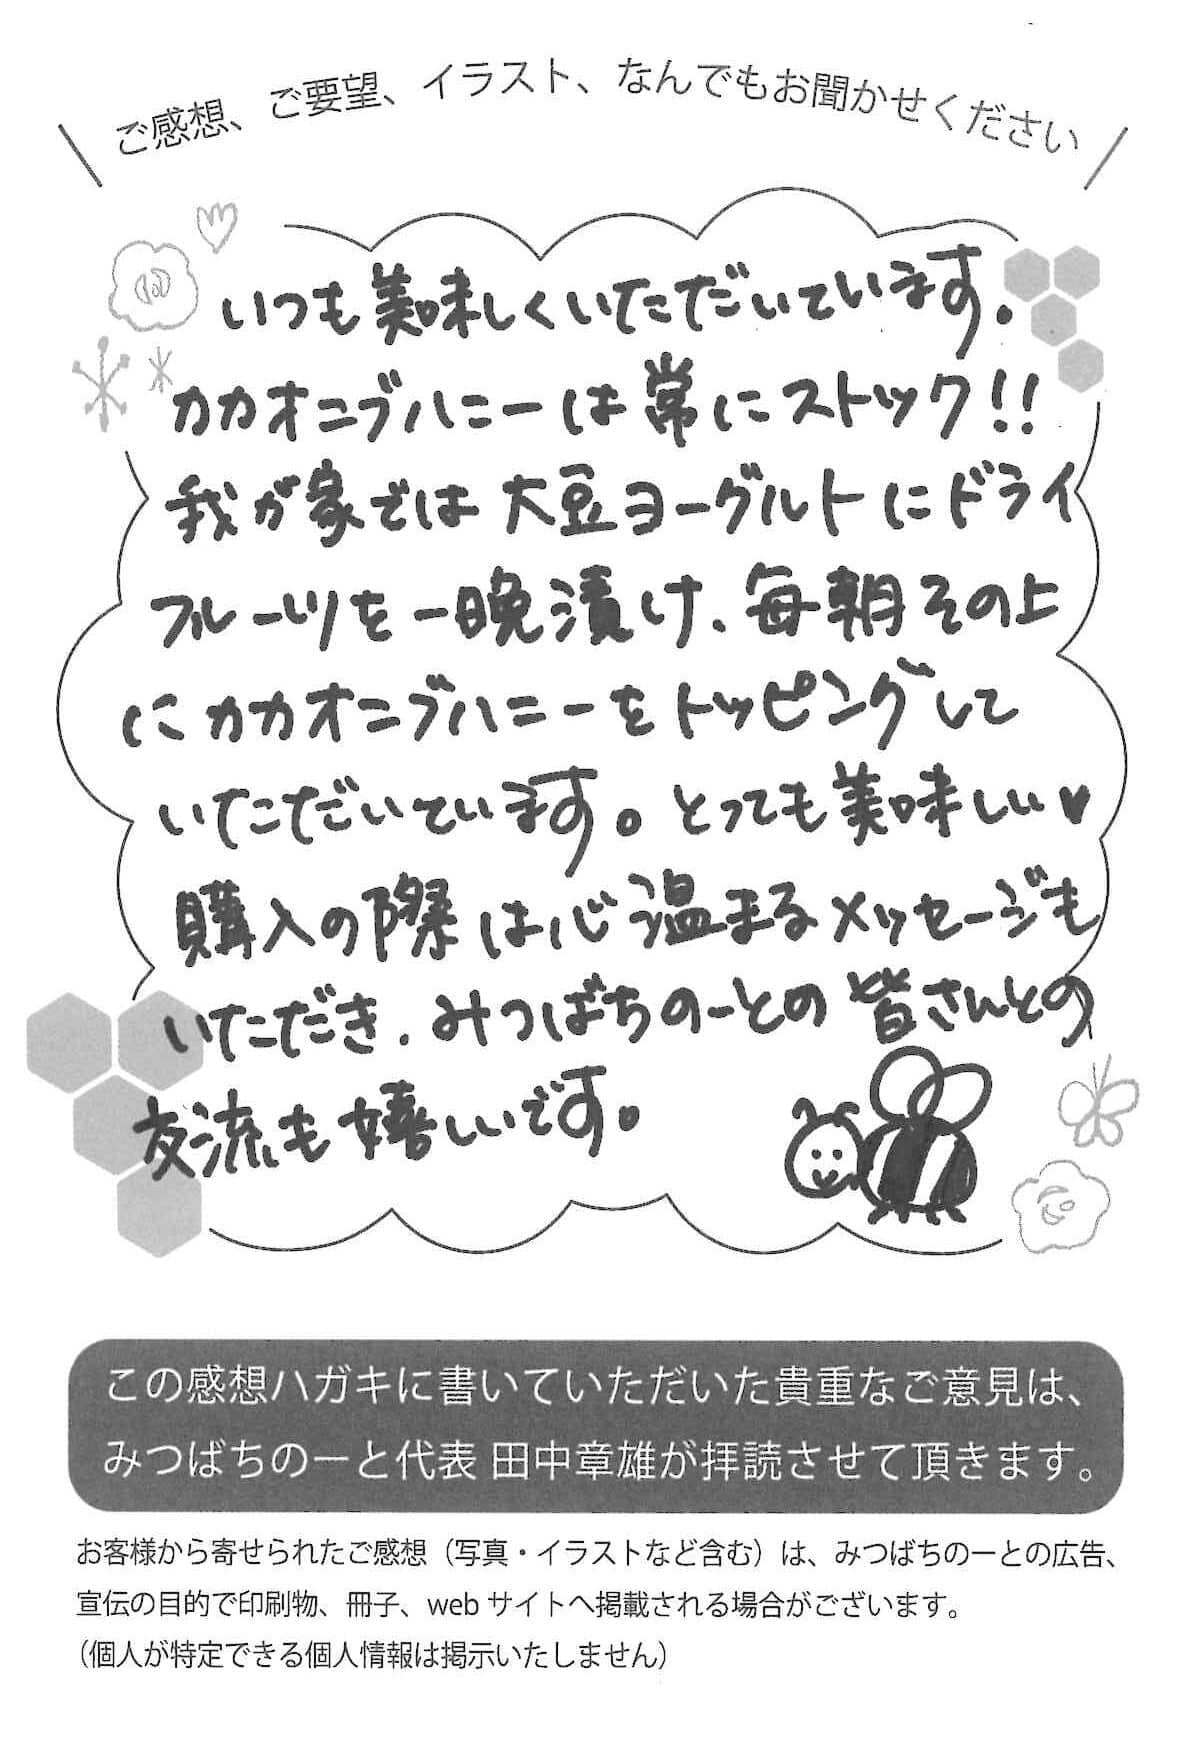 ご感想、ご要望、イラスト、なんでもお聞かせください
いつも美味しくいただいています。
カカオニブハニーは常にストック!!
我が家では大豆ヨーグルトにドライ
フルーツを一晩漬け、毎朝その上
にカカオニブハニーをトッピングして
いただいています。とっても美味しい♥
購入の際は心温まるメッセージも
いただき、みつばちのーとの皆さんとの
交流も嬉しいです。
この感想ハガキに書いていただいた貴重なご意見は、
みつばちのーと代表 田中章雄が拝読させて頂きます。
お客様から寄せられたご感想（写真・イラストなど含む）は、みつばちのーとの広告、
宣伝の目的で印刷物、冊子、webサイトへ掲載される場合がございます。
（個人が特定できる個人情報は掲示いたしません）